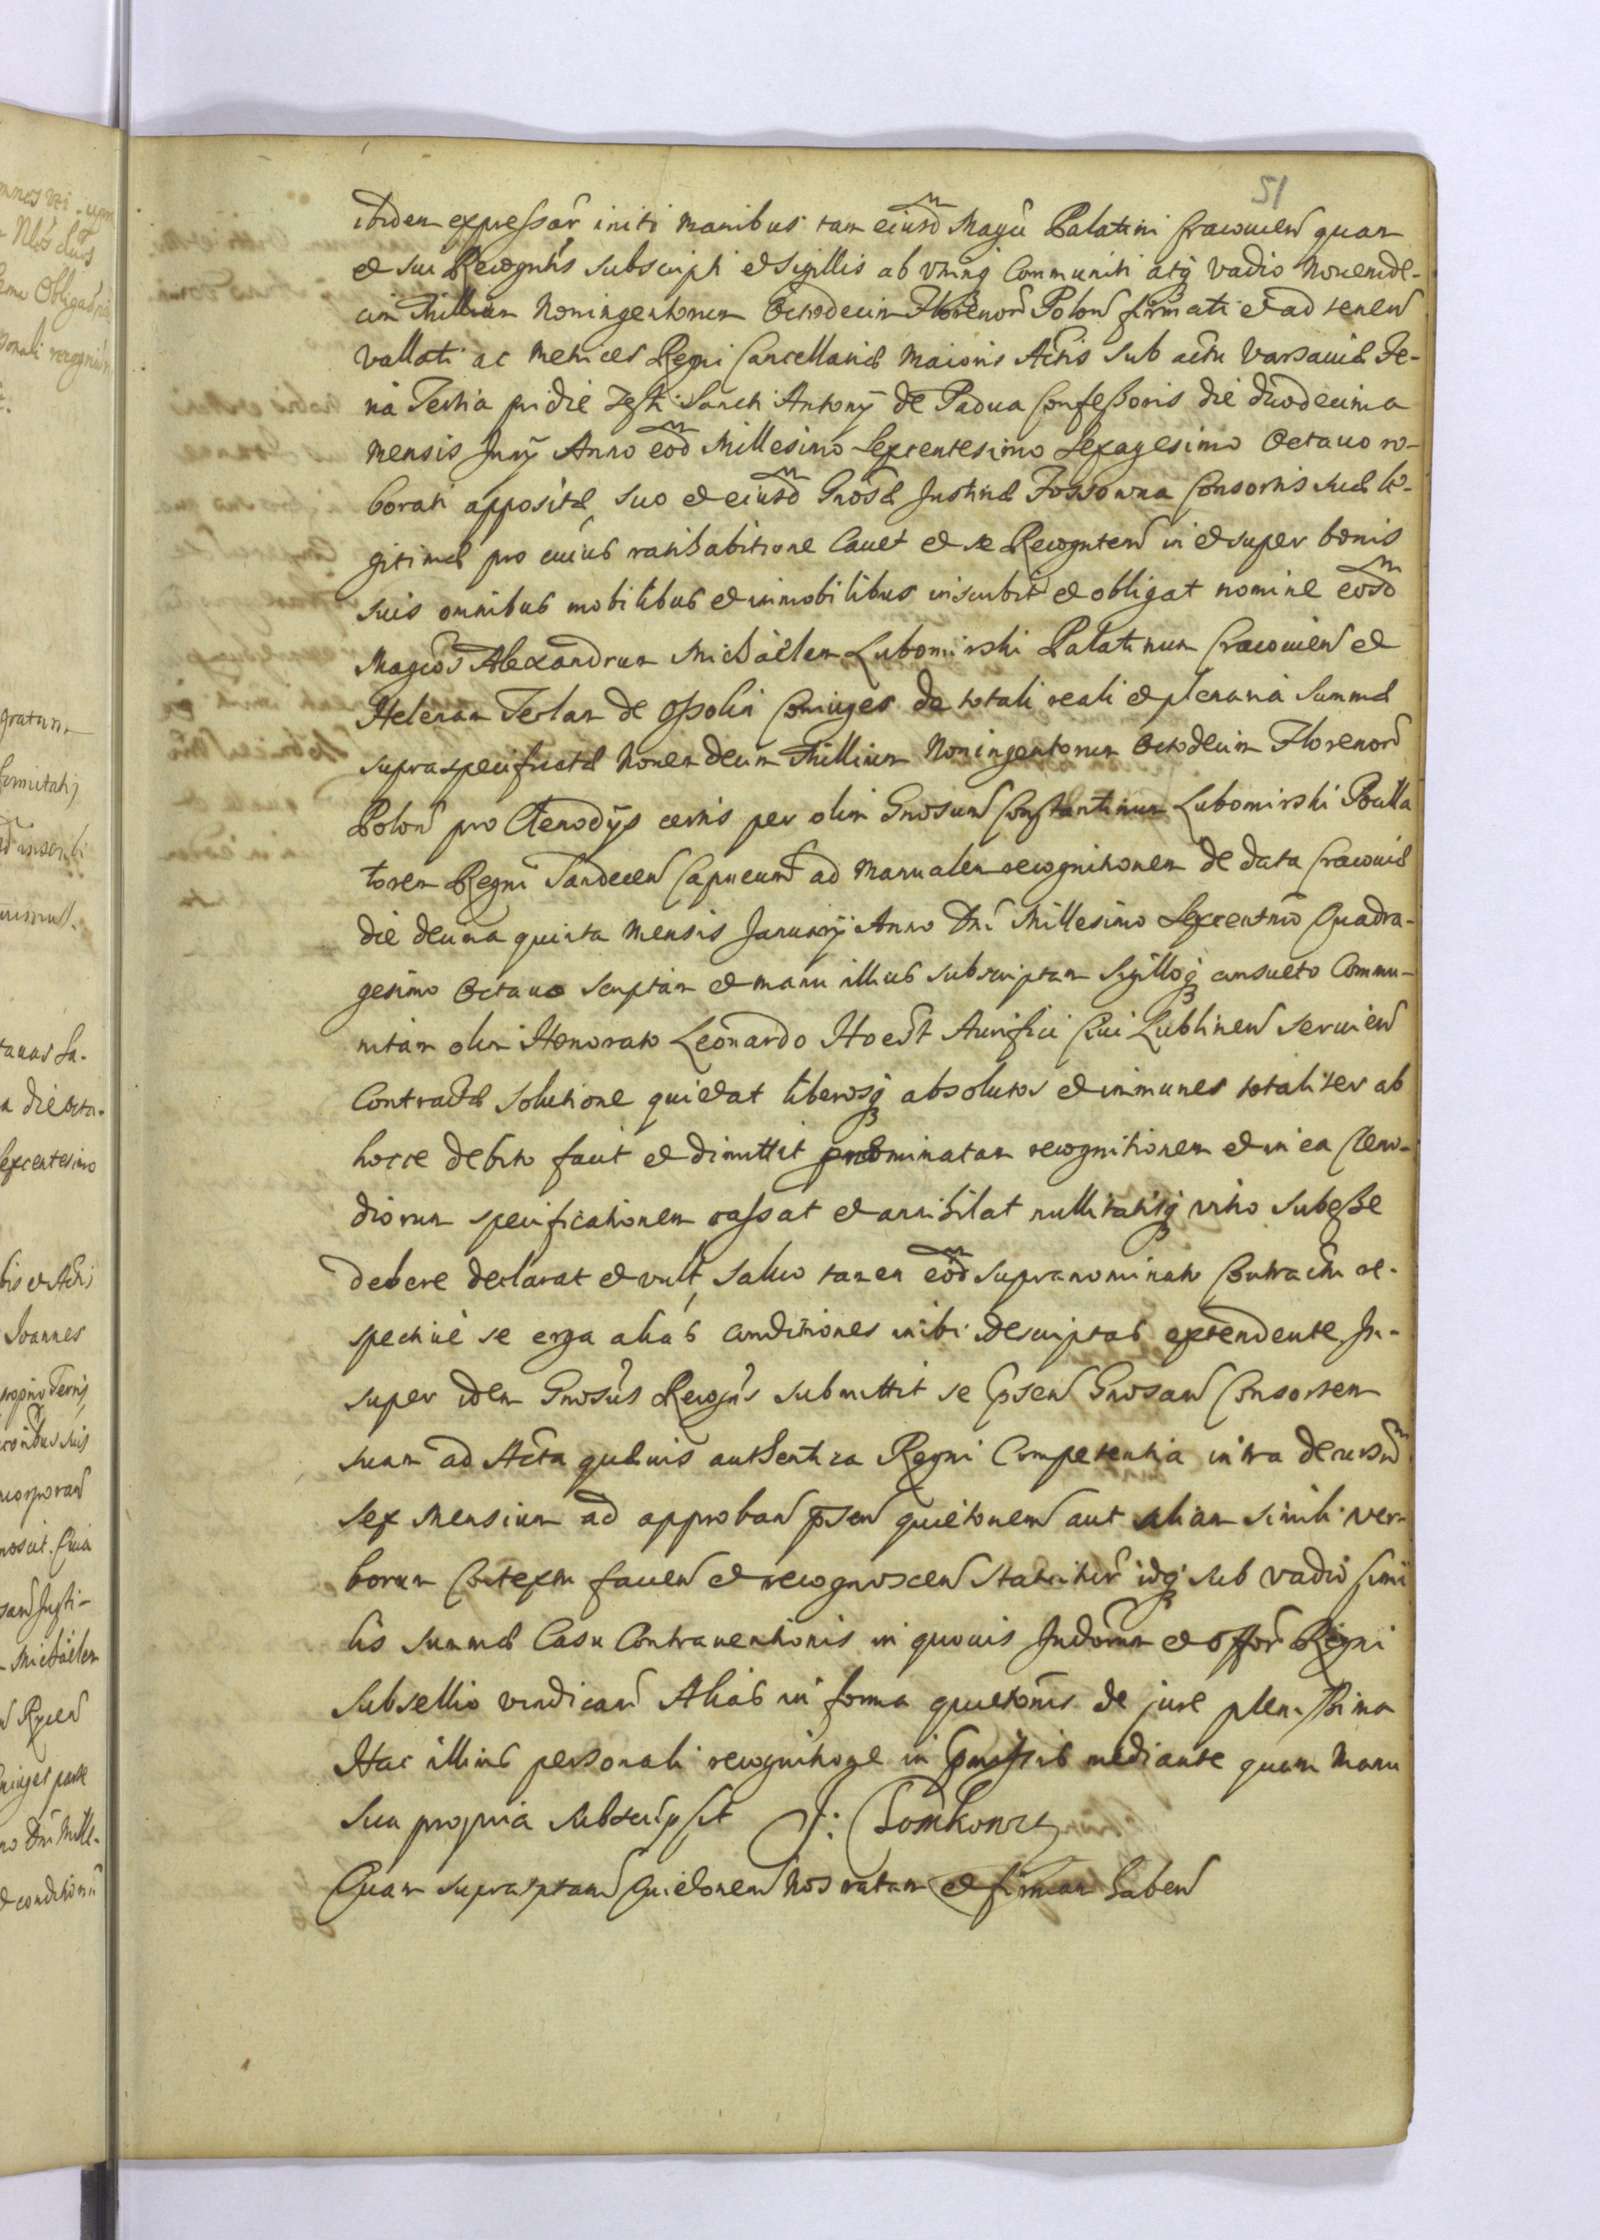 51
ibidem expressar initi manibus tam eiusd Magci Palatini Cracouien quam
et sui Recogntis subscripti et Sigillis ab utrinq Communiti atq vadio Nouemde-
cim Millium Noningentorum Octodecim Florenor Polon firmati et ad tenen
Vallati ac Metrices Regni Cancellariæ Maioris Actis sub actu Varsauiæ Fe-
ria Tertia pridie Festi Sancti Antonij de Padua Confessoris die duodecima
Mensis Junij Anno eod Millesimo Sexcentesimo Sexagesimo Octauo ro-
borati apposita, suo et eiusd Gnosæ Justinæ Fossowna Consortis suæ le-
gitimæ pro cuius ratihabitione Cauet et se Recognten in et super bonis
suis omnibus mobilibus et immobilibus inscribit et obligat nomine eosd
Magcos Alexandrum Michaëlem Lubomirski Palatinum Cracouien et
Helenam Teclam de Ossolin Coniuges de totali reali et plenaria Summæ
supraspecificatæ Nonemdecim Millium Noningentorum Octodecim Florenor
Polon pro Clenodijs certis per olim Gnosum Constantinum Lubomirski Pocilla
torem Regni Sandecen Capneum ad Manualem recognitionem de data Cracouiæ
die decima quinta Mensis Januarij Anno Dni Millesimo Sexcentmo Quadra-
gesimo Octauo scriptam et manu illius subscriptam Sigilloq consueto Commu-
nitam olim Honorato Leonardo Hoest Aurifici Ciui Lublinen seruien
Contractæ solutione quietat liberosq absolutos et immunes totaliter ab
hocce debito facit et dimittit prænominatam recognitionem et in ea Cleno-
diorum specificationem cassat et annihilat nullitatisq vitio subesse
debere declarat et vult, saluo tamen eod supranominato Contractu re-
spectiue se erga alias conditiones inibi descriptas extendente, In-
super idem Gnosus Recogns submittit se psen Gnosam Consortem
suam ad Acta quæuis authentica Regni Competentia intra decursum
sex Mensium ad approban psen quietonem aut aliam simili ver-
borum Contextu facien et recognoscen statuitur idq sub vadio simi
lis summæ Casu Contrauentionis in quouis Judorum et Offor Regni
Subsellio vindican Alias in forma quietonis de jure plenissima
Hac illius personali recognitione in præmissis mediante quam Manu
sua propria subscripsit J:
Quam suprascriptam Quietonem Nos ratam et firmam haben